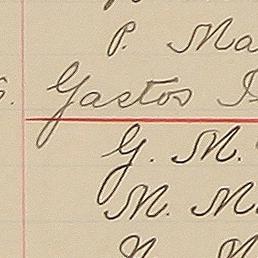 P. Ma
Gastos
G. M.
M. M